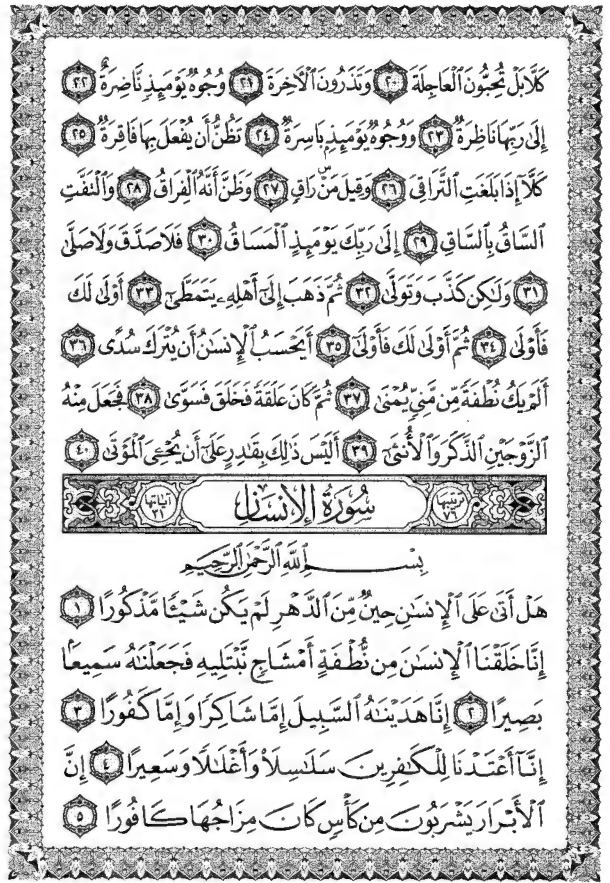 كَلَّا بَلْ تُحِبُّونَ ٱلْعَاجِلَةَ ٢٠ وَتَذَرُونَ ٱلْأٓخِرَةَ ٢١ وُجُوهٌ يَوْمَئِذٍ نَّاضِرَةٌ ٢٢
إِلَىٰ رَبِّهَا نَاظِرَةٌ ٢٣ وَوُجُوهٌ يَوْمَئِذٍۭ بَاسِرَةٌ ٢٤ تَظُنُّ أَن يُفْعَلَ بِهَا فَاقِرَةٌ ٢٥
كَلَّآ إِذَا بَلَغَتِ ٱلتَّرَاقِىَ ٢٦ وَقِيلَ مَنْ ۜ رَاقٍ ٢٧ وَظَنَّ أَنَّهُ ٱلْفِرَاقُ ٢٨ وَٱلْتَفَّتِ
ٱلسَّاقُ بِٱلسَّاقِ ٢٩ إِلَىٰ رَبِّكَ يَوْمَئِذٍ ٱلْمَسَاقُ ٣٠ فَلَا صَدَّقَ وَلَا صَلَّىٰ
٣١ وَلَٰكِن كَذَّبَ وَتَوَلَّىٰ ٣٢ ثُمَّ ذَهَبَ إِلَىٰٓ أَهْلِهِۦ يَتَمَطَّىٰٓ ٣٣ أَوْلَىٰ لَكَ
فَأَوْلَىٰ ٣٤ ثُمَّ أَوْلَىٰ لَكَ فَأَوْلَىٰٓ ٣٥ أَيَحْسَبُ ٱلْإِنسَٰنُ أَن يُتْرَكَ سُدًى ٣٦
أَلَمْ يَكُ نُطْفَةً مِّن مَّنِىٍّ يُمْنَىٰ ٣٧ ثُمَّ كَانَ عَلَقَةً فَخَلَقَ فَسَوَّىٰ ٣٨ فَجَعَلَ مِنْهُ
ٱلزَّوْجَيْنِ ٱلذَّكَرَ وَٱلْأُنثَىٰٓ ٣٩ أَلَيْسَ ذَٰلِكَ بِقَٰدِرٍ عَلَىٰٓ أَن يُحْـِۧىَ ٱلْمَوْتَىٰ ٤٠
ترتيبها ٧٦ سُورَةُ الإِنسَانِ آياتها ٣١
بِسْمِ ٱللَّهِ ٱلرَّحْمَٰنِ ٱلرَّحِيمِ
هَلْ أَتَىٰ عَلَى ٱلْإِنسَٰنِ حِينٌ مِّنَ ٱلدَّهْرِ لَمْ يَكُن شَيْـًٔا مَّذْكُورًا ١
إِنَّا خَلَقْنَا ٱلْإِنسَٰنَ مِن نُّطْفَةٍ أَمْشَاجٍ نَّبْتَلِيهِ فَجَعَلْنَٰهُ سَمِيعًۢا
بَصِيرًا ٢ إِنَّا هَدَيْنَٰهُ ٱلسَّبِيلَ إِمَّا شَاكِرًا وَإِمَّا كَفُورًا ٣
إِنَّآ أَعْتَدْنَا لِلْكَٰفِرِينَ سَلَٰسِلَا۟ وَأَغْلَٰلًا وَسَعِيرًا ٤ إِنَّ
ٱلْأَبْرَارَ يَشْرَبُونَ مِن كَأْسٍ كَانَ مِزَاجُهَا كَافُورًا ٥